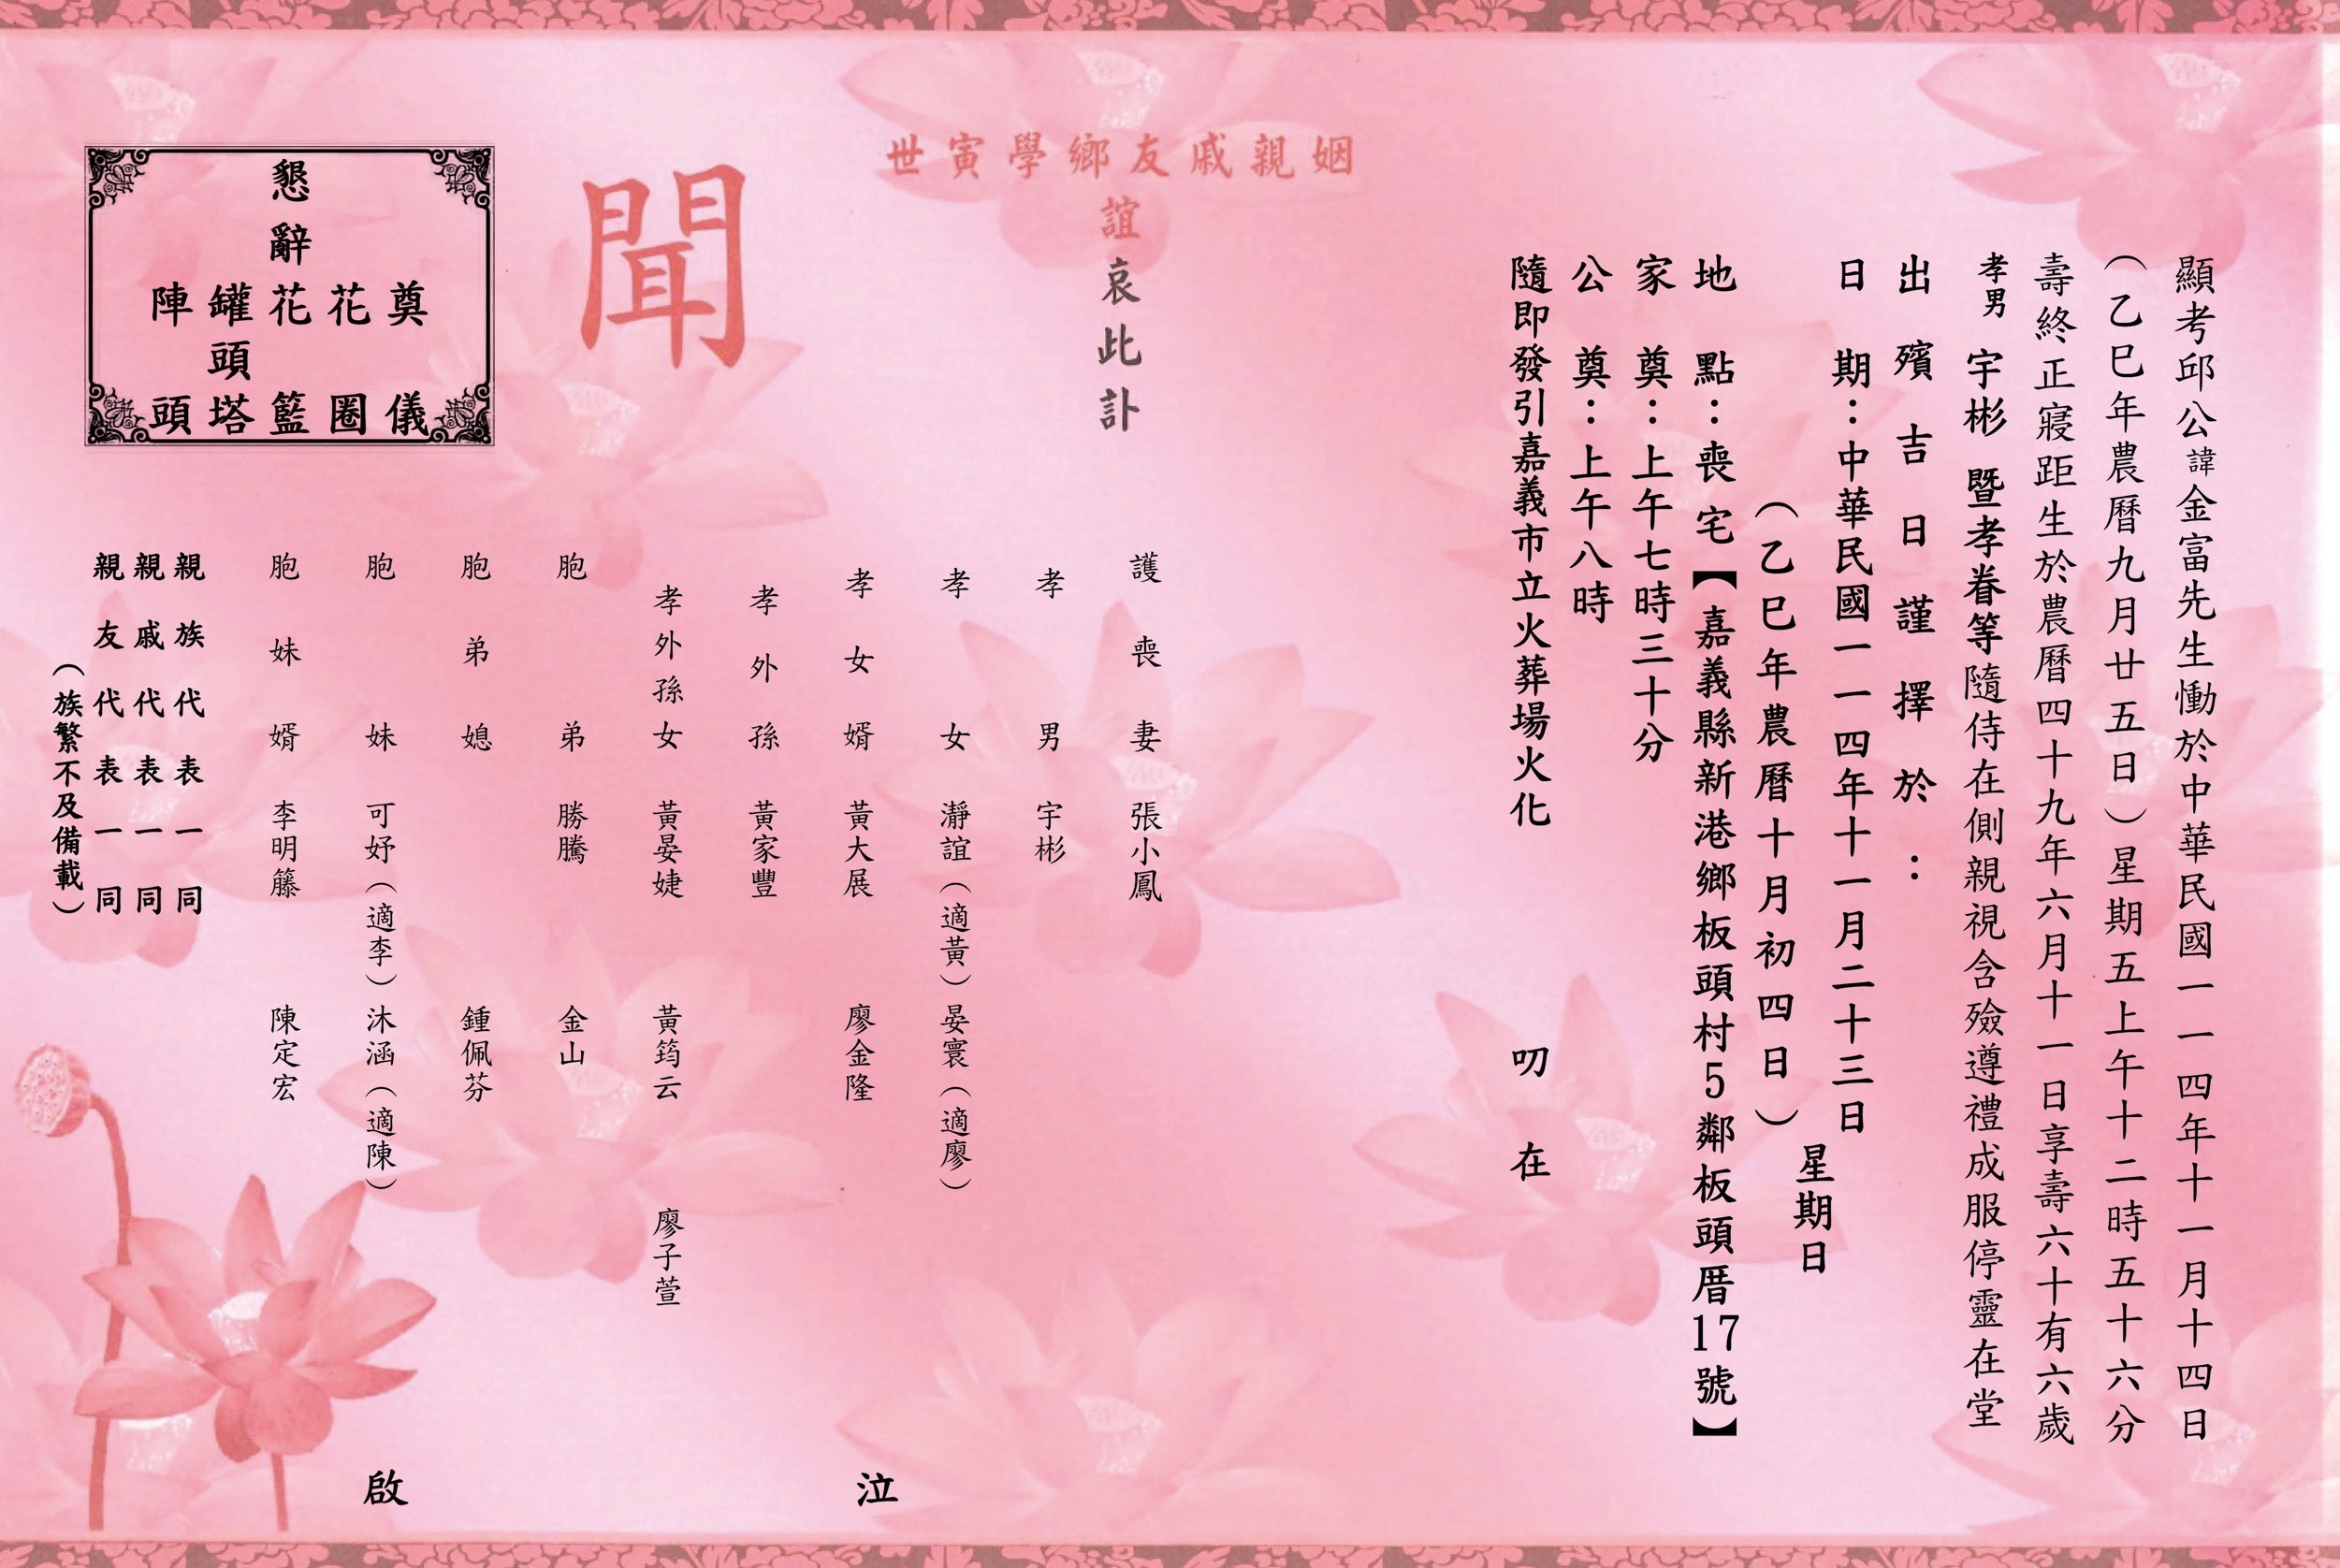 顯考邱公諱金富先生慟於中華民國一一四年十一月十四日
（乙巳年農曆九月廿五日）星期五上午十二時五十六分
壽終正寢距生於農曆四十九年六月十一日享壽六十有六歲
孝男 宇彬 暨孝眷等隨侍在側親視含殮遵禮成服停靈在堂
出殯吉日謹擇於：
日期：中華民國一一四年十一月二十三日
（乙巳年農曆十月初四日）
星期日
地點：喪宅【嘉義縣新港鄉板頭村5鄰板頭厝17號】
家奠：上午七時三十分
公奠：上午八時
隨即發引嘉義市立火葬場火化 叨在
姻親戚友鄉學寅世
誼哀此訃
聞
懇辭
奠儀
花圈
花籃
罐頭塔
陣頭
護喪妻 張小鳳
孝男 宇彬
孝女 瀞誼（適黃） 晏寰（適廖）
孝女婿 黃大展 廖金隆
孝外孫 黃家豐
孝外孫女 黃晏婕 黃筠云 廖子萱
胞弟 勝騰 金山
胞弟媳 鍾佩芬
胞妹 可妤（適李） 沐涵（適陳）
胞妹婿 李明籐 陳定宏
親族代表一同
親戚代表一同
親友代表一同
（族繁不及備載）
泣啟